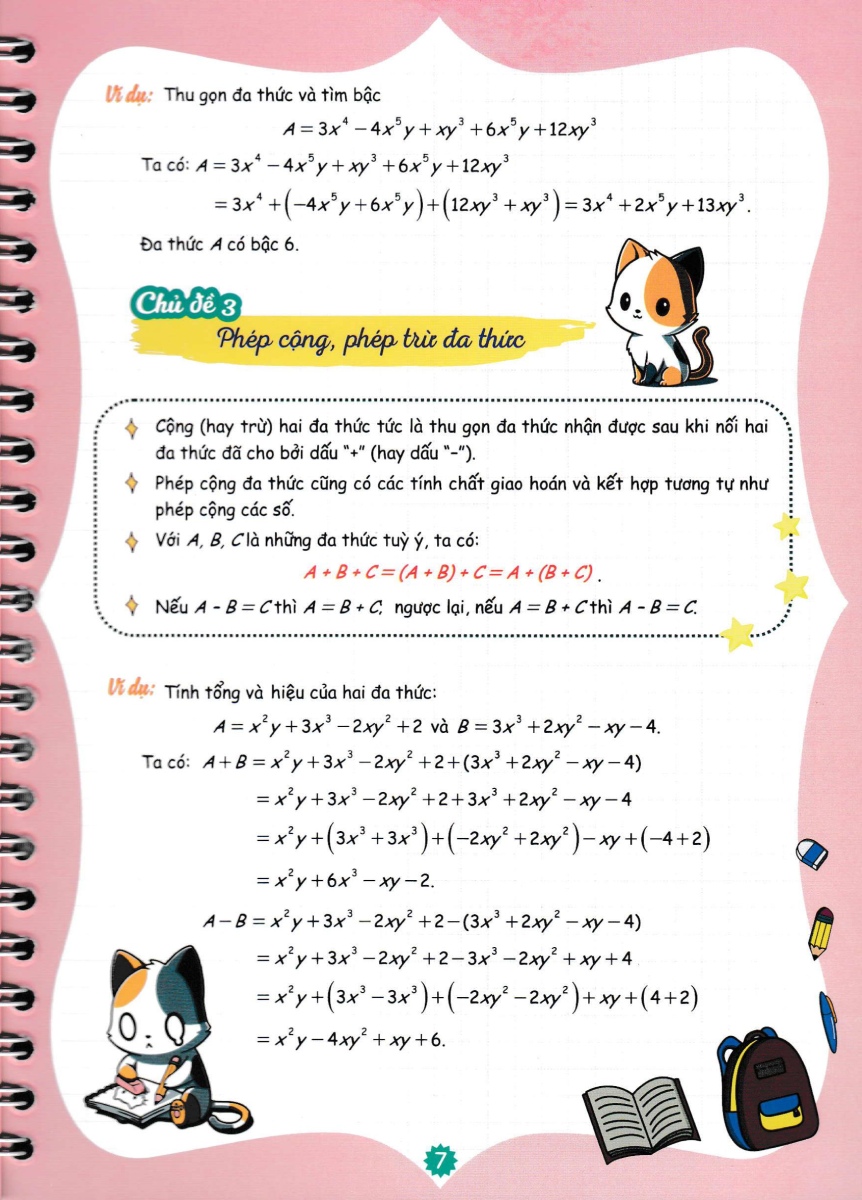 Ví dụ: Thu gọn đa thức và tìm bậc
A = 3x⁴ − 4x⁵y + xy³ + 6x⁵y + 12xy³
Ta có: A = 3x⁴ − 4x⁵y + xy³ + 6x⁵y + 12xy³
= 3x⁴ + (−4x⁵y + 6x⁵y) + (12xy³ + xy³) = 3x⁴ + 2x⁵y + 13xy³.
Đa thức A có bậc 6.
Chủ đề 3
Phép cộng, phép trừ đa thức
Cộng (hay trừ) hai đa thức tức là thu gọn đa thức nhận được sau khi nối hai
đa thức đã cho bởi dấu “+” (hay dấu “-”).
Phép cộng đa thức cũng có các tính chất giao hoán và kết hợp tương tự như
phép cộng các số.
Với A, B, C là những đa thức tuỳ ý, ta có:
A + B + C = (A + B) + C = A + (B + C) .
Nếu A - B = C thì A = B + C; ngược lại, nếu A = B + C thì A - B = C.
Ví dụ: Tính tổng và hiệu của hai đa thức:
A = x²y + 3x³ − 2xy² + 2 và B = 3x³ + 2xy² − xy − 4.
Ta có: A + B = x²y + 3x³ − 2xy² + 2 + (3x³ + 2xy² − xy − 4)
= x²y + 3x³ − 2xy² + 2 + 3x³ + 2xy² − xy − 4
= x²y + (3x³ + 3x³) + (−2xy² + 2xy²) − xy + (−4 + 2)
= x²y + 6x³ − xy − 2.
A − B = x²y + 3x³ − 2xy² + 2 − (3x³ + 2xy² − xy − 4)
= x²y + 3x³ − 2xy² + 2 − 3x³ − 2xy² + xy + 4
= x²y + (3x³ − 3x³) + (−2xy² − 2xy²) + xy + (4 + 2)
= x²y − 4xy² + xy + 6.
7